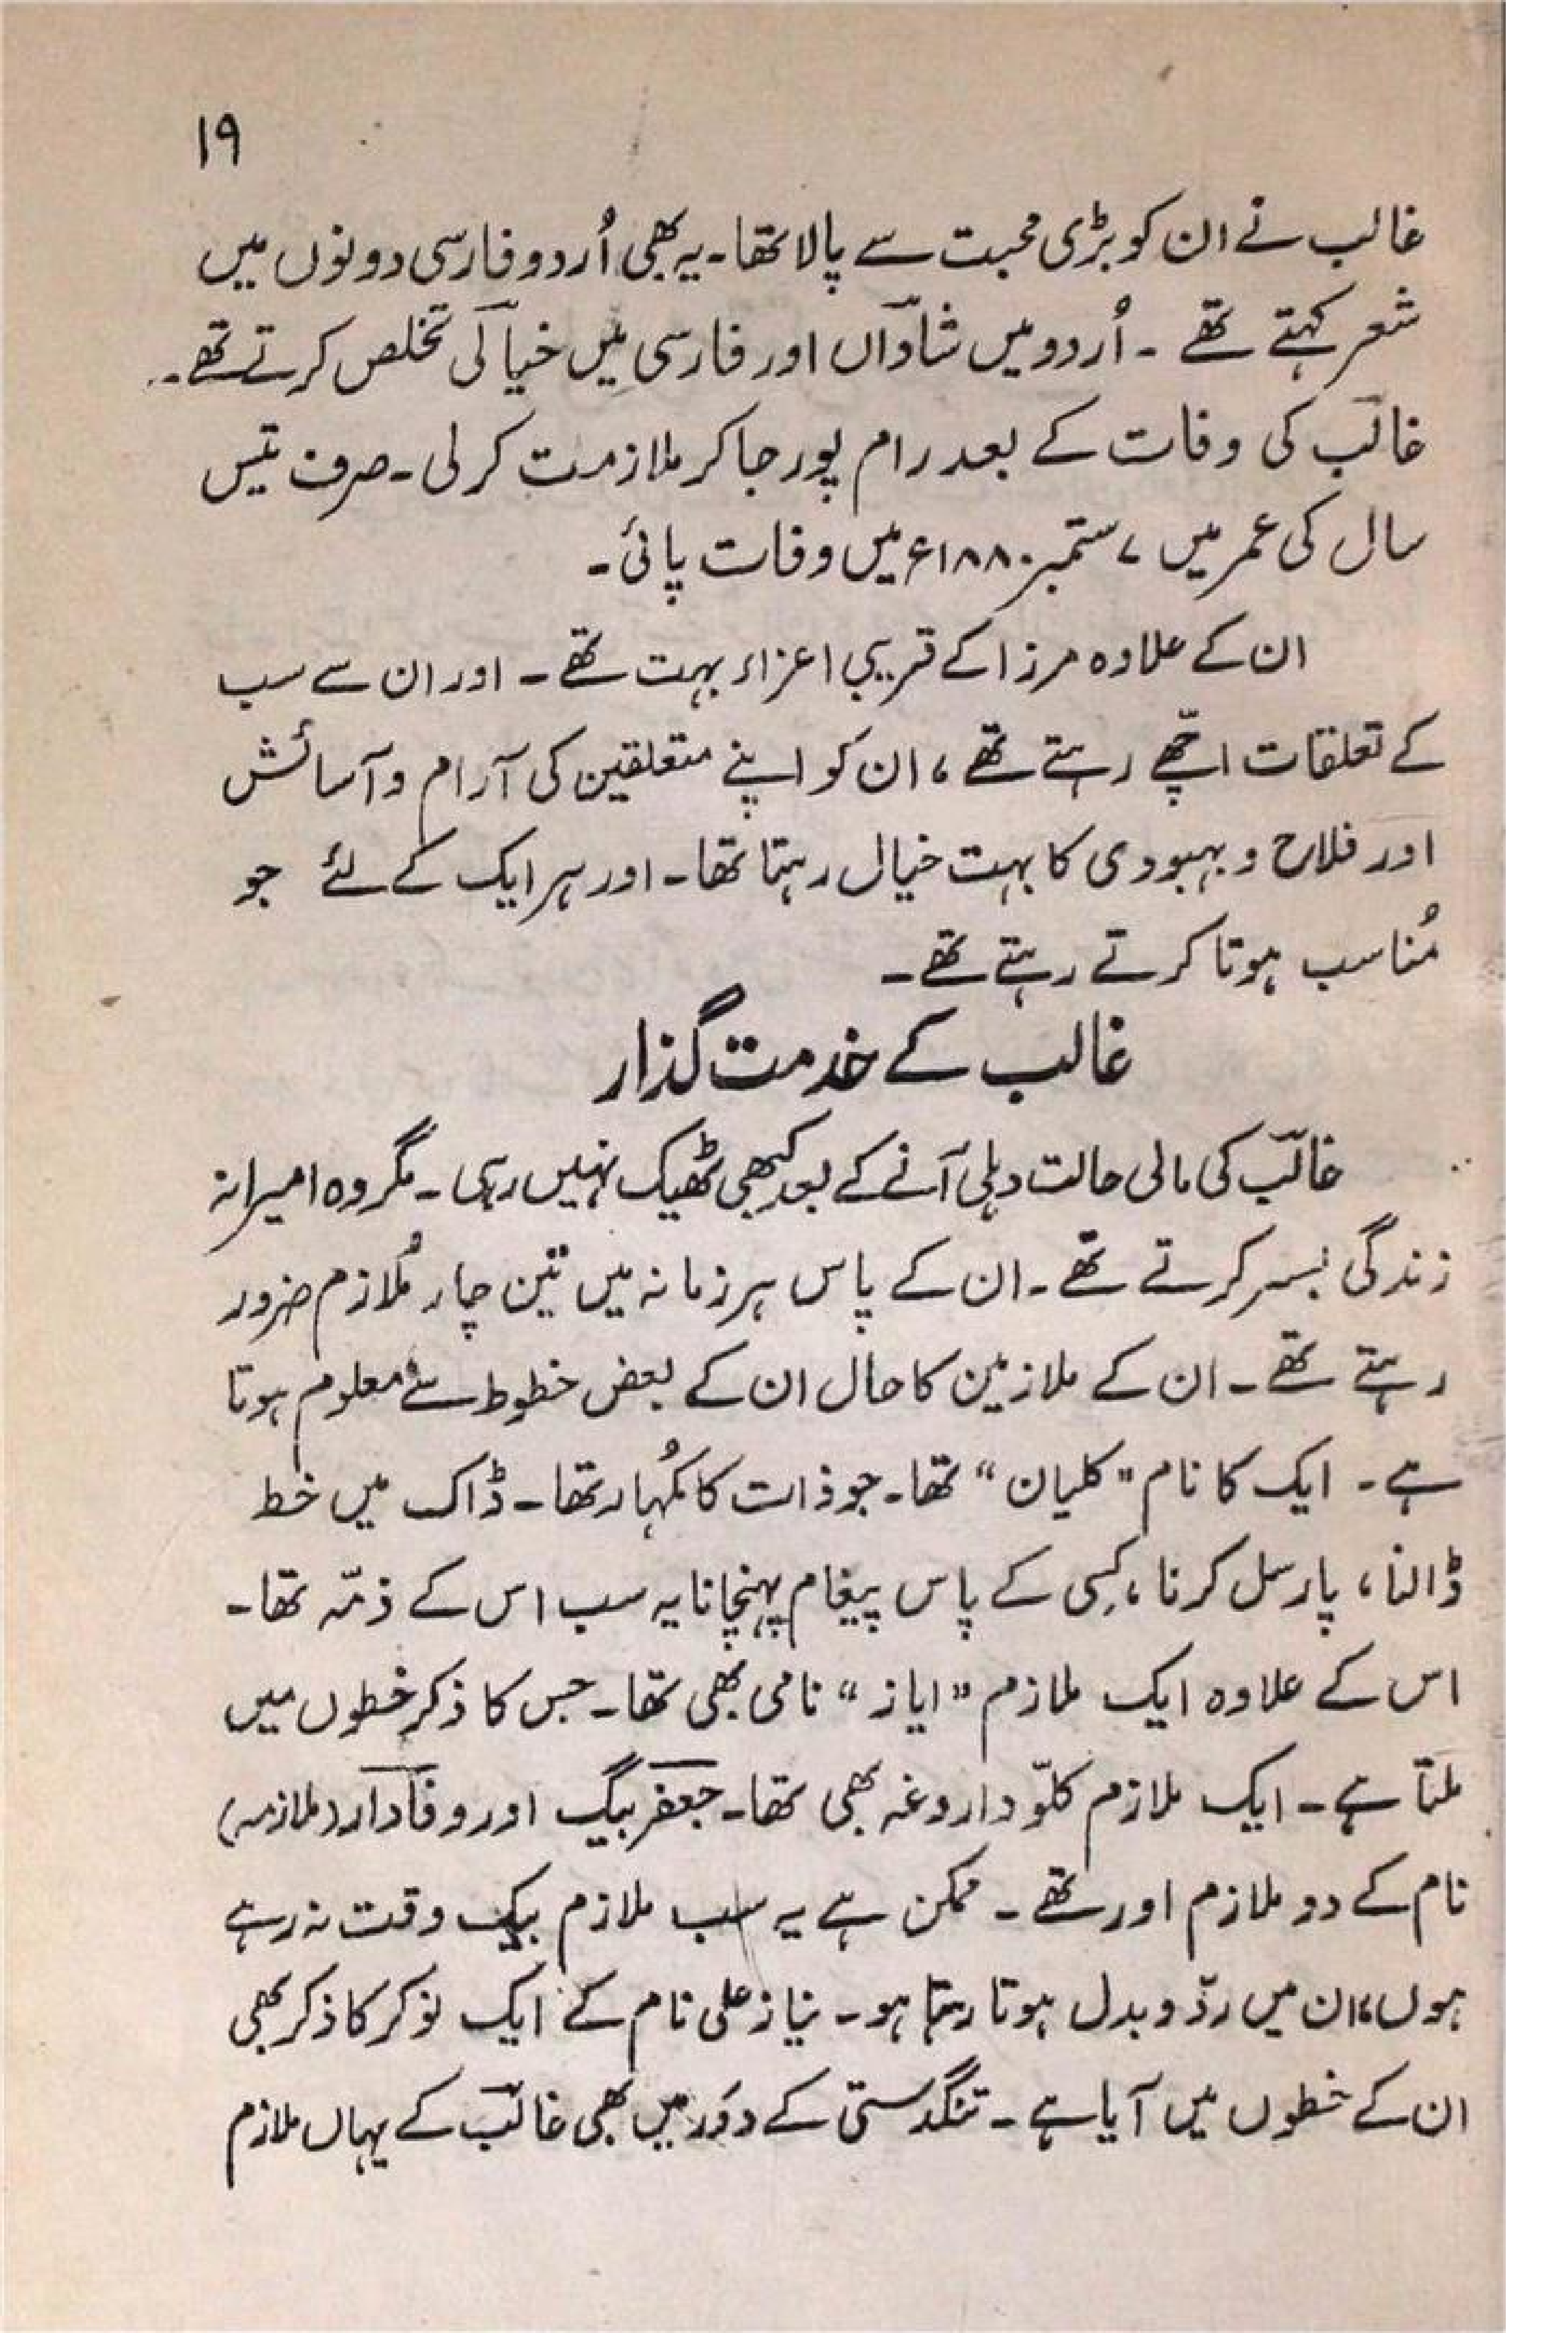 ۱۹
غالب نے ان کو بڑی محبت سے پالا تھا۔ یہ بھی اُردو فارسی دونوں میں
شعر کہتے تھے ۔ اُردو میں شاداؔں اور فارسی میں خیاؔلی تخلص کرتے تھے۔
غالبؔ کی وفات کے بعد رام پور جا کر ملازمت کر لی۔ صرف تیس
سال کی عمر میں ۷ ستمبر ۱۸۸۰ء میں وفات پائی۔
ان کے علاوہ مرزا کے قریبی اعزاء بہت تھے ۔ اور ان سے سب
کے تعلقات اچّھے رہتے تھے ، ان کو اپنے متعلقین کی آرام و آسائش
اور فلاح و بہبودی کا بہت خیال رہتا تھا۔ اور ہر ایک کے لئے جو
مُناسب ہوتا کرتے رہتے تھے ۔
غالب کے خدمت گذار
غالبؔ کی مالی حالت دہلی آنے کے بعد کبھی ٹھیک نہیں رہی ۔ مگر وہ امیرانہ
زندگی بسر کرتے تھے ۔ ان کے پاس ہر زمانہ میں تین چار مُلازم ضرور
رہتے تھے ۔ ان کے ملازمین کا حال ان کے بعض خطوط سے معلوم ہوتا
ہے ۔ ایک کا نام "کلیان" تھا۔ جو ذات کا کُمہار تھا۔ ڈاک میں خط
ڈالنا ، پارسل کرنا ، کِسی کے پاس پیغام پہنچانا یہ سب اس کے ذمّہ تھا۔
اس کے علاوہ ایک ملازم "ایاز" نامی بھی تھا۔ جس کا ذکر خطوں میں
ملتا ہے ۔ ایک ملازم کلّو داروغہ بھی تھا۔ جعفر بیگ اور وفادار (ملازمہ)
نام کے دو ملازم اور تھے ۔ ممکن ہے یہ سب ملازم بیک وقت نہ رہے
ہوں، ان میں ردّ و بدل ہوتا رہتا ہو ۔ نیاز علی نام کے ایک نوکر کا ذکر بھی
ان کے خطوں میں آیا ہے ۔ تنگدستی کے دَور میں بھی غالبؔ کے یہاں ملازم